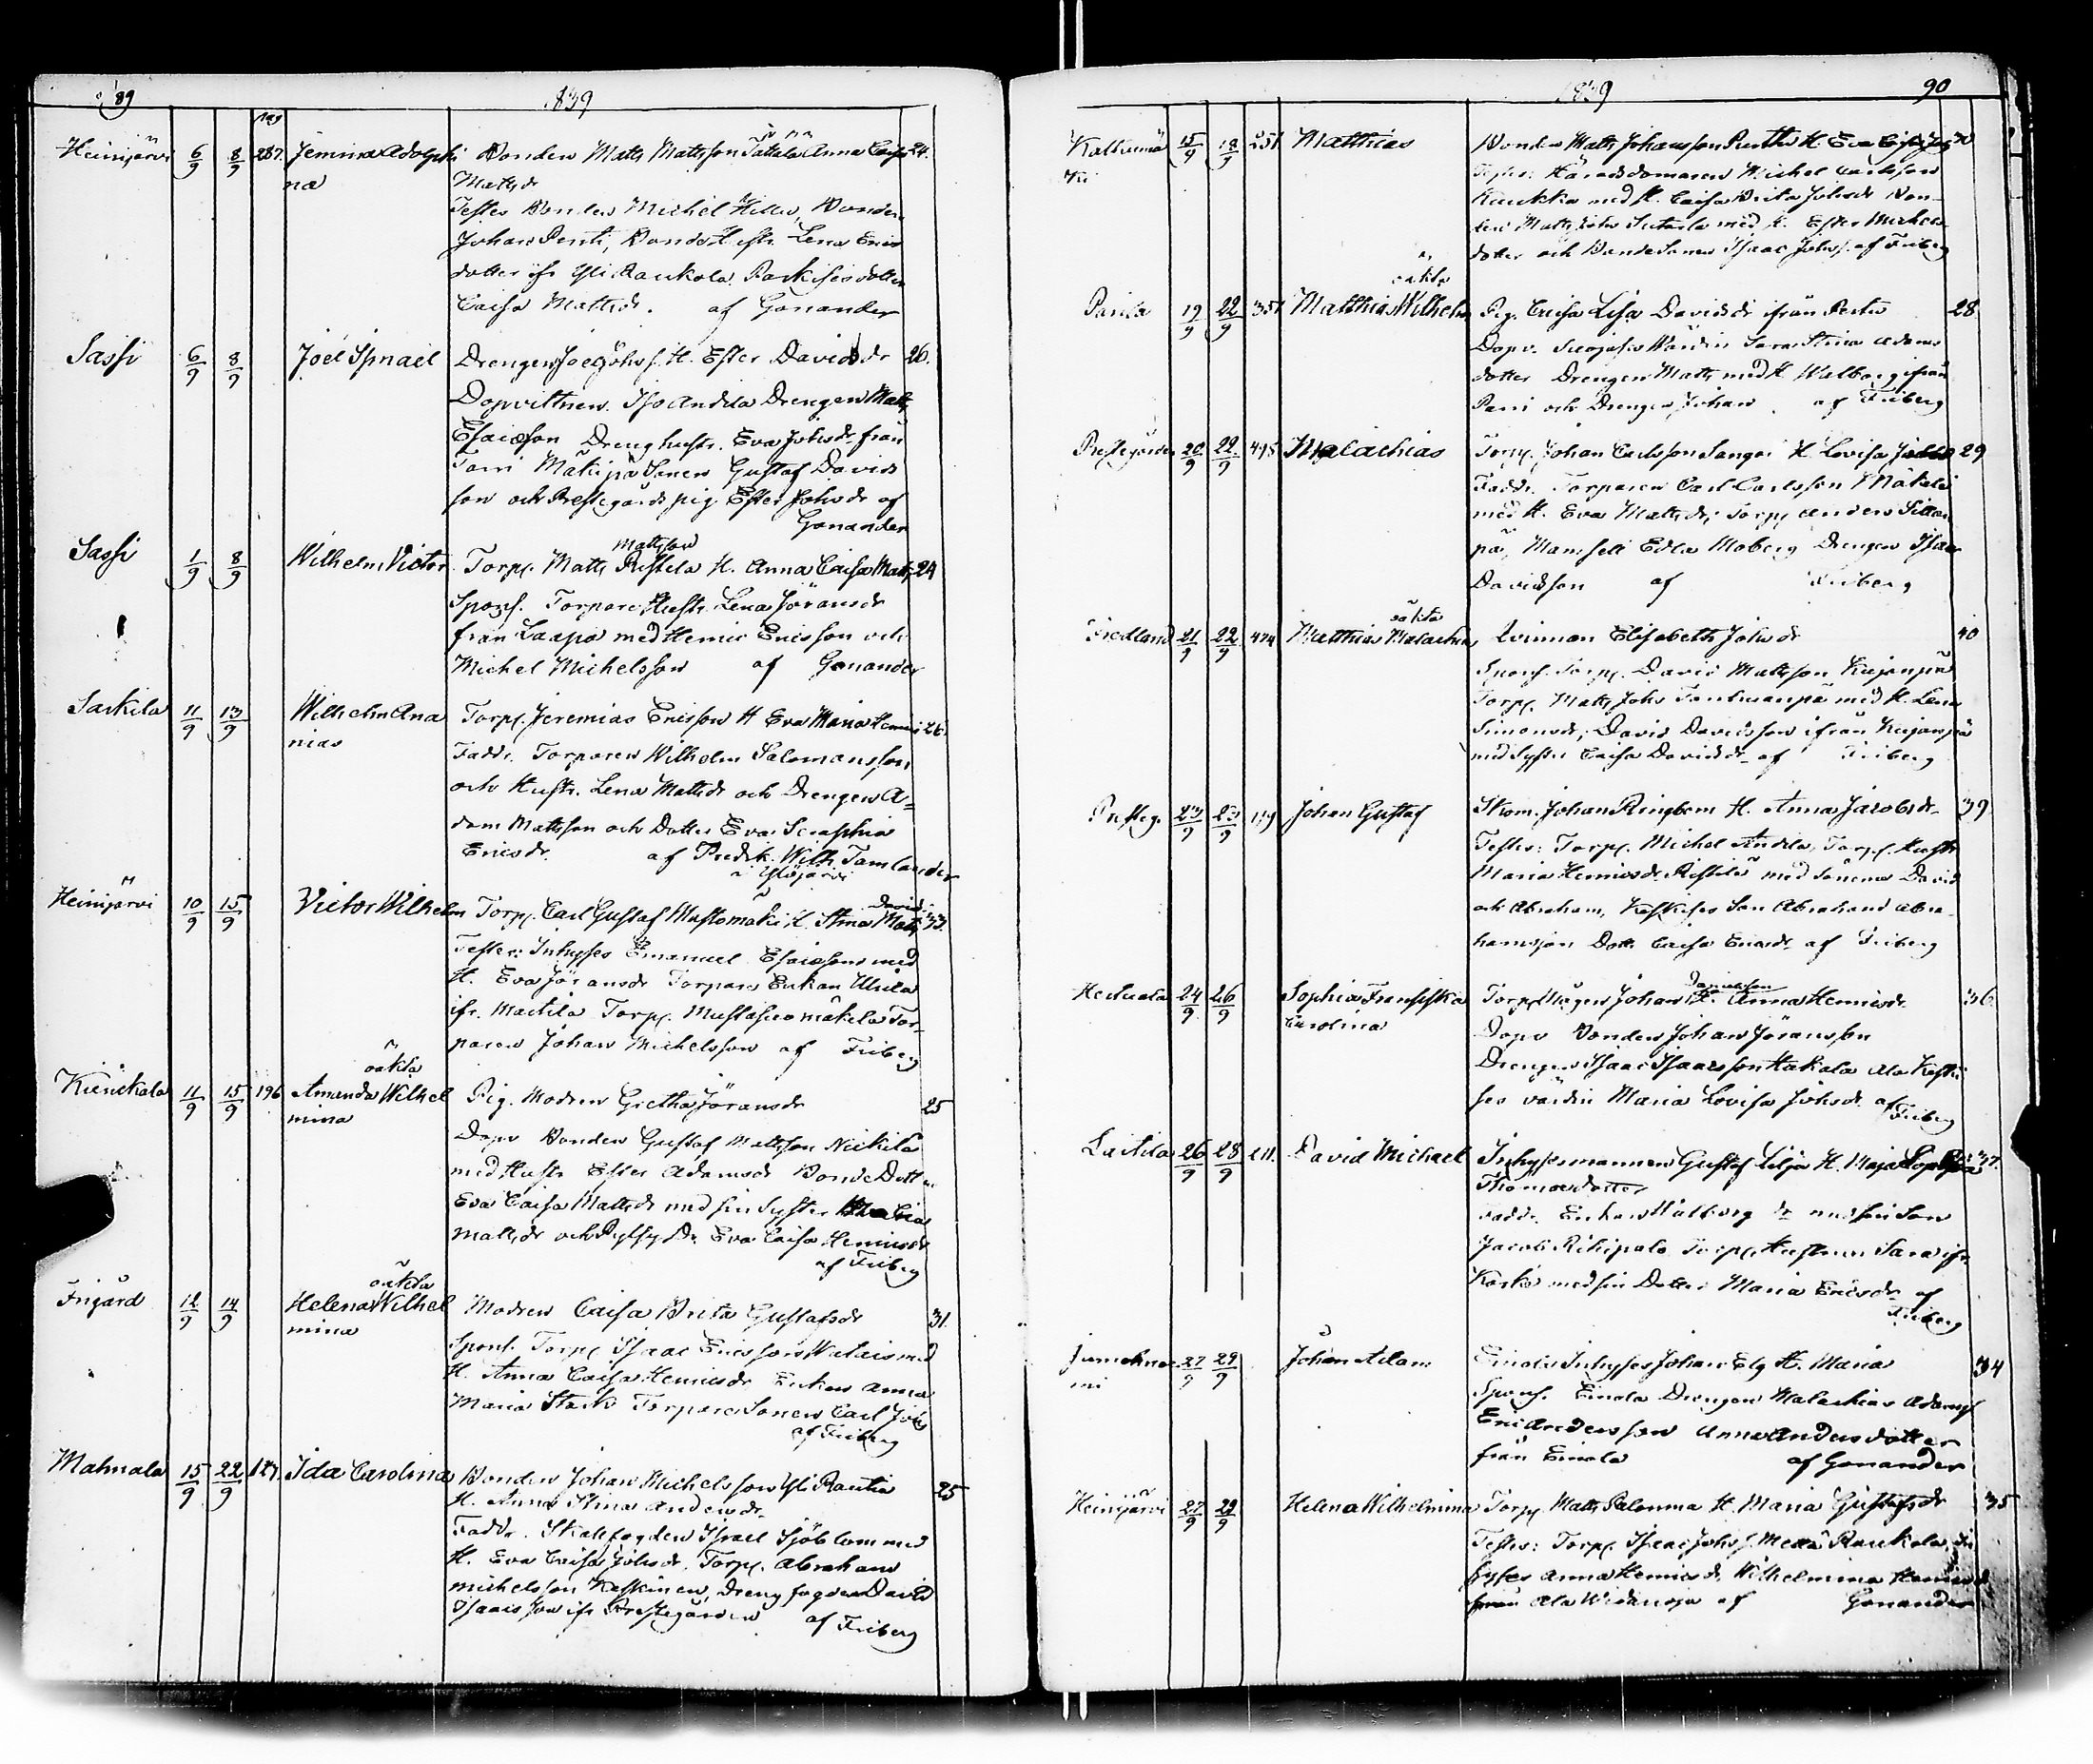 89
1839
pag
Heinijärvi 6/9 8/9 287. Jemina Adolphi Bonden Matts Mattsson Tattala Anna Caisa 24.
na Mattsdr
Testes Bonden Michel Hiller, Bonden
Johan Penti, Bonde Hustr. Lena Erics
dotter ifr Yli Raukola. Backises dotter
Caisa Mattsdr. af Gonander
Sassi 6/9 8/9 Joel Ismael Drengen Joel Johss. H. Ester Davidsdr 26.
Dopvittnen. Iso Andila Drengen Matts
Esaiæson Dreng hustr. Eva Johsdr från
Torri Mäkipä Sonen Gustaf Davids
son och Prestegårds pig. Ester Johsdr af
Gonander
Mattsson
Sassi 1/9 8/9 Wilhelm Victor Torp. Matts Ristila H. Anna Caisa Matts 24
Spons. Torpare Hustr. Lena Jöransdr
från Laapa med Henric Ericsson och
Michel Michelsson af Gonander
Sarkila 11/9 13/9 Wilhelm Ana Torp. Jeremias Ericsson H Eva Maria Henrics 26.
nias Faddr. Torparen Wilhelm Salomansson
och Hustr. Lena Mattsdr och Drengen A=
dam Mattsson och Dotter Eva Seraphia
Ericsdr. af Fredrik Wilh. Tamlander
i Ylöjärvi
Davids
Heinijärvi 10/9 15/9 Victor Wilhelm Torp. Carl Gustaf Mustomäki H. Stina Matts 33.
Testes: Inhyses Emanuel Esaiæson med
H. Eva Jöransdr Torpare Enkan Ulrica
ifr. Mattila Torp. Mustasuomäkila Tor-
paren Johan Michelsson af Friberg
oäkta
Kuuikala 11/9 15/9 196 Amanda Wilhel Pig. Modren Gretha Jöransdr 25
mina
Dopv Bonden Gustaf Mattsson Nickila
med Hustr Ester Adamsdr Bonde Dotter
Eva Caisa Mattsdr med sin Syster
Mattsdr och Eva Caisa Henricsdr
af Friberg
oäkta
Frigård 12/9 14/9 Helena Wilhel Modren Caisa Brita Gustafsdr 31.
mina
Spons. Torp Isaac Ericsson med
H. Anna Caisa Henricsdr Enkan Anna
Maria Stark Torpare Sonen Carl Johs
af Friberg
Mahnala 15/9 22/9 127. Ida Carolina Bonden Johan Michelsson Yli Rantia 25
H. Anna Stina Andersdr.
Faddr. Skallfogden Israel Sjöblom med
H. Eva Caisa Johsdr. Torp. Abraham
Michelsson Keskinen, Dreng fogden David
Isaacsson ifr Prestegården af Friberg
1839
90
Kalkunmä 15/9 18/9 251 Matthias Bonden Matts Johansson Penthi H. Eva
ki Testes: Häradsdomaren Michel Carlsson
Kaukka med H. Caisa Brita Johsdr Bon-
den Matts Johs med H. Ester Michels-
dotter och Bonde Sonen Isaac Johss. af Friberg
oäkta
Parila 19/9 22/9 351 Matthias Wilhelm Pig. Caisa Lisa Davidsdr ifrån Pentis 28
Dopv. Sara Stina Adams
dotter Drengen Matts med H. Walborg ifrån
Parri och Drengen Johan af Friberg
Prestegården 20/9 22/9 Malachias Torp. Johan Carlsson Sangoi H. Lovisa 29
Faddr. Torparen Carl Carlsson Mäkelä
med H. Eva Mattsdr, Torp Anders Sillan
pä, Mamsell Edla Moberg Drengen Isaac
Davidsson af Friberg
oäkta
Fredland 21/9 22/9 474 Matthias Malachias Qvinnan Elisabeth Johsdr 40
Spons. Torp. David Mattsson Kujanpä
Torp. Matts Johs med H. Lena
Simonsdr, David Davidsson ifrån Kujanpä
med Syster Caisa Davidsdr af Friberg
Presteg. 23/9 23/9 Johan Gustaf Skom. Johan Ringbom H. Anna Jacobsdr 39
Testes: Torp. Michel Andila, Torp. Hustr
Maria Henricsdr Ristilä med Sönerna David
och Abraham, Keskises Son Abraham Abra-
hamsson Dott. Caisa Ericsdr af Friberg
Danielson
Hertuala 24/9 26/9 Sophia Fransiska Torp Mågen Johan H. Anna Henricsdr 36
Carolina
Dopv Bonden Johan Jöransson
Drengen Isaac Isaacsson Hakala Ala Keski
ses värdin Maria Lovisa Johsdr af
Friberg
Laitila 26/9 28/9 211. David Michael Inhysesmannen Gustaf Lilja H. Maja 37.
Thomasdotter
Faddr. Enkan Walborg dr med sin Son
Jacob Rikipalo Torp. Hustrun Sara ifr.
Karki med sin Dotter Maria Ericsdr af
Friberg
27/9 29/9 Johan Adam Einola Inhyses Johan Elg H. Maria 34
mi
Spons. Einola Drengen Malachias Adamss
Eric Andersson Anna Andersdotter
från Einola af Gonander
Heinijärvi 27/9 29/9 Helena Wilhelmina Torp. Matts Palomma H. Maria Gustafsdr 35
Testes: Torp. Isaac Johss Raukola, In
hyses Anna Henricsdr, Wilhelmina Henricsd
från Ala af Gonander